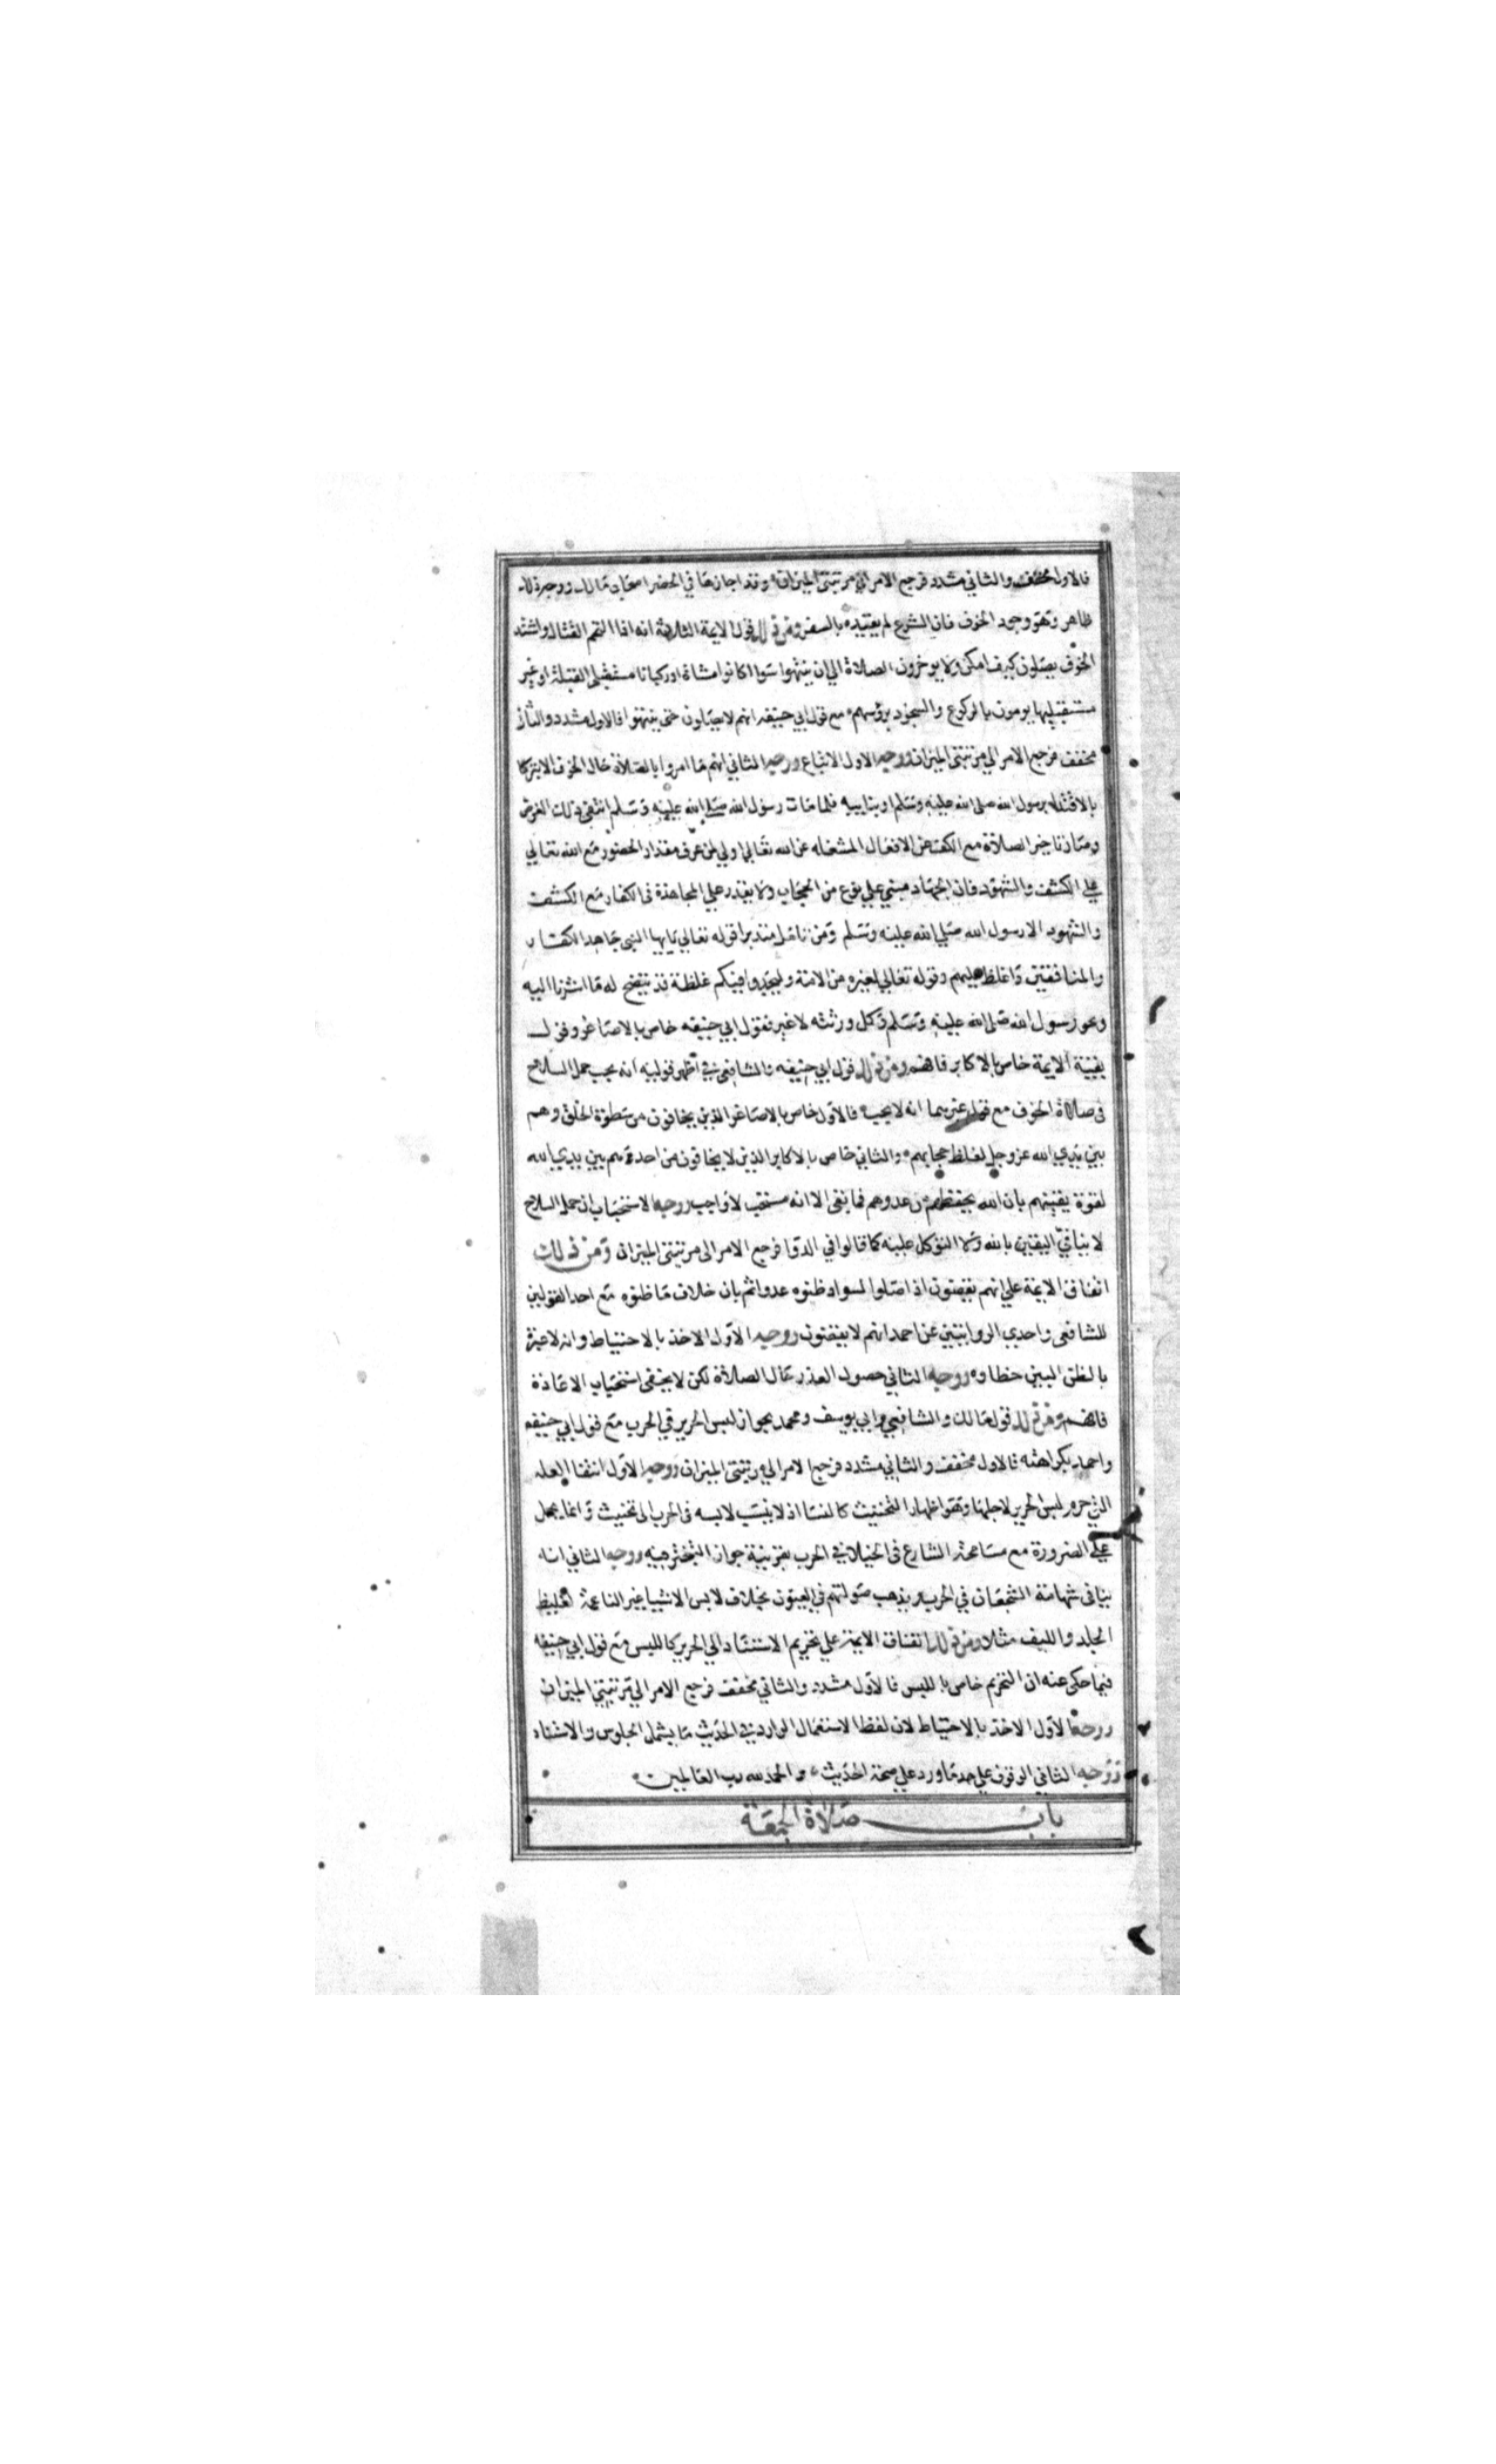 فالاول مخفف والثاني مشدد فرجع الامر الي مرتبتي الميزان وقد اجازها في الحضر اصحاب مالك ووجه ذلك
ظاهر وهو وجود الخوف فان الشرع لم يقيده بالسفر ومن ذلك قول الايمة الثلاثة انه اذا التحم القتال واشتد
الخوف يصلون كيف امكن ولا يوخرون الصلاة الي ان ينتهوا سوا كانوا مشاة او ركبانا مستقبلي القبلة او غير
مستقبليها يومون بالركوع والسجود برؤسهم مع قول ابي حنيفه انهم لا يصلون حتى ينتهوا فالاول مشدد والثاني
مخفف فرجع الامر الي مرتبتي الميزان ووجه الاول الاتباع ووجه الثاني انهم ما امروا بالصلاة حال الخوف الا تبركا
بالاقتدا برسول الله صلى الله عليه وسلم او بنايبه فلما مات رسول الله صلى الله عليه وسلم انتفى ذلك الغرض
وصار تاخير الصلاة مع الكف عن الافعال المشغله عن الله تعالى اولي لمن عرف مقدار الحضور مع الله تعالي
علي الكشف والشهود فان الجهاد مبني علي نوع من الحجاب ولا يقدر علي المجاهدة في الكفار مع الكشف
والشهود الا رسول الله صلي الله عليه وسلم ومن تامل متدبرا قوله تعالي يايها النبي جاهد الكفار
والمنافقين واغلظ عليهم وقوله تعالي لغيره من الامة وليجدوا فيكم غلظة قد يتضح له ما اشرنا اليه
وهو رسول الله صلى الله عليه وسلم وكل ورثته لا غير فقول ابي حنيفه خاص بالاصاغر وقول
بقية الايمة خاص بالاكابر فافهم ومن ذلك قول ابي حنيفه والشافعي في اظهر قوليه انه يجب حمل السلاح
في صلاة الخوف مع قول غيرهما انه لا يجب فالاول خاص بالاصاغر الذين يخافون من سطوة الخلق وهم
بين يدي الله عز وجل لغلظ حجابهم والثاني خاص بالاكابر الذين لا يخافون من احد وهم بين يدي الله
لقوة يقينهم بان الله يحفظهم من عدوهم فما بقى الا انه مستحب لا واجب ووجه الاستحباب ان حمل السلاح
لا ينافي اليقين بالله ولا التوكل عليه كما قالوا في الدوا فرجع الامر الى مرتبتي الميزان ومن ذلك
اتفاق الايمة علي انهم يقضون اذا صلوا لسواد ظنوه عدوا ثم بان خلاف ما ظنوه مع احد القولين
للشافعى واحدي الروايتين عن احمد انهم لا يقضون ووجه الاول الاخذ بالاحتياط وانه لا عبرة
بالظن البين خطاوه ووجه الثاني حصول العذر حال الصلاة لكن لا يخفى استحباب الاعادة
فافهم ومن ذلك قول مالك والشافعي وابي يوسف ومحمد بجواز لبس الحرير في الحرب مع قول ابي حنيفه
واحمد بكراهته فالاول مخفف والثاني مشدد فرجع الامر الي مرتبتي الميزان ووجه الاول انتفا العله
التي حرم لبس الحرير لاجلها وهو اظهار التخنيث كالنسا اذ لا ينسب لابسه في الحرب الى تخنيث وانما يحمل
علي الضرورة مع مسامحة الشارع في الخيلا في الحرب بقرينة جواز التبختر فيه ووجه الثاني انه
ينافى شهامة الشجعان في الحرب ويذهب صولتهم في العيون بخلاف لابس الاشيا غير الناعمة كغليظ
الجلد والليف مثلا ومن ذلك اتفاق الايمة علي تحريم الاستناد الي الحرير كاللبس مع قول ابي حنيفه
فيما حكى عنه ان التحريم خاص باللبس فالاول مشدد والثاني مخفف فرجع الامر الي مرتبتي الميزان
ووجه الاول الاخذ بالاحتياط لان لفظ الاستعمال الوارد في الحديث مما يشمل الجلوس والاستناد
ووجه الثاني الوقوف علي حد ما ورد علي صحة الحديث والحمد لله رب العالمين
باب صلاة الجمعة